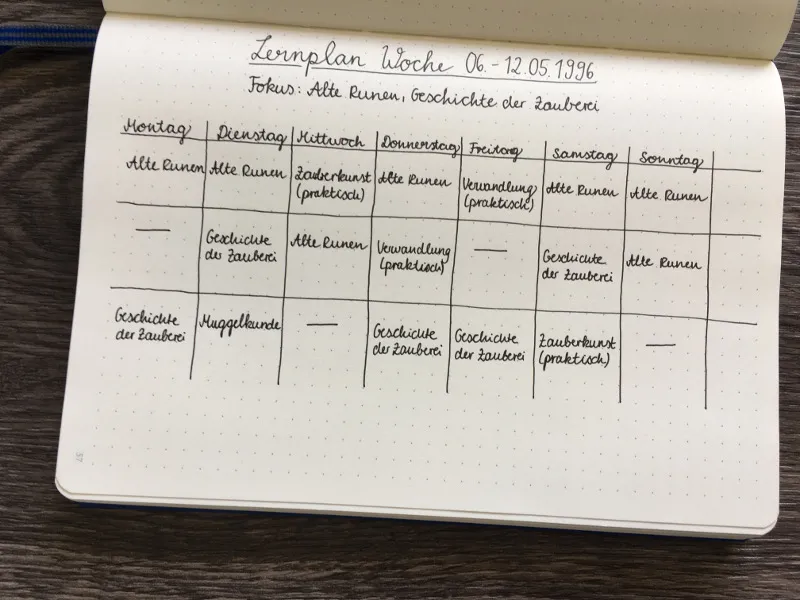 Lernplan Woche 06. - 12.05.1996
Fokus: Alte Runen, Geschichte der Zauberei
Montag Dienstag Mittwoch Donnerstag Freitag Samstag Sonntag
Alte Runen Alte Runen Zauberkunst Alte Runen Verwandlung Alte Runen Alte Runen
(praktisch) (praktisch)
— Geschichte Alte Runen Verwandlung — Geschichte Alte Runen
der Zauberei (praktisch) der Zauberei
Geschichte Muggelkunde — Geschichte Geschichte Zauberkunst —
der Zauberei der Zauberei der Zauberei (praktisch)
37